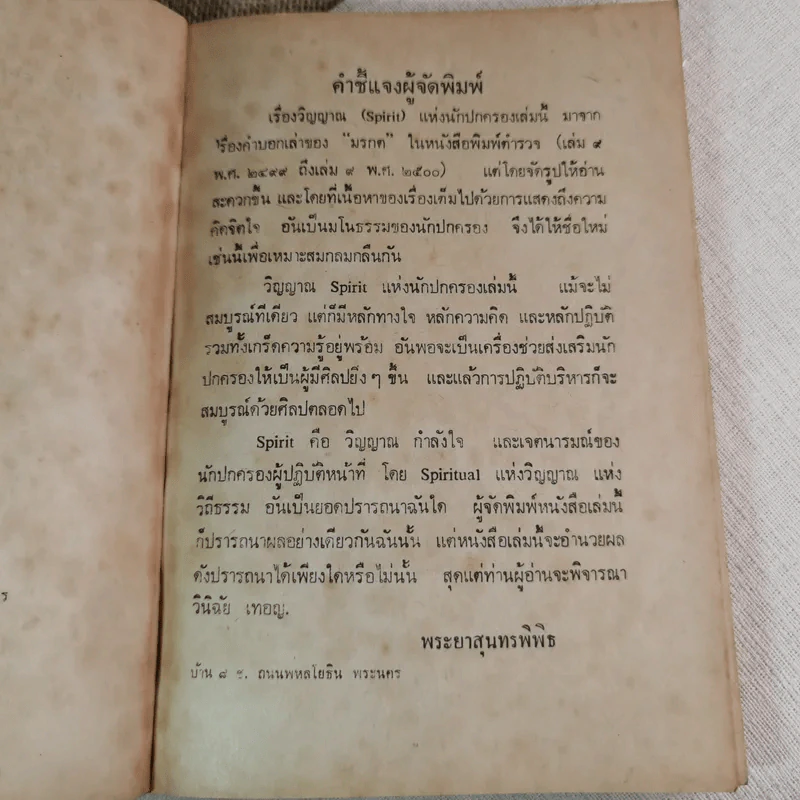 คำชี้แจงผู้จัดพิมพ์
เรื่องวิญญาณ (Spirit) แห่งนักปกครองเล่มนี้ มาจาก
เรื่องคำบอกเล่าของ "มรกต" ในหนังสือพิมพ์ตำรวจ (เล่ม ๙
พ.ศ. ๒๔๙๙ ถึงเล่ม ๙ พ.ศ. ๒๕๐๐) แต่โดยจัดรูปให้อ่าน
สะดวกขึ้น และโดยที่เนื้อหาของเรื่องเต็มไปด้วยการแสดงถึงความ
คิดจิตใจ อันเป็นมโนธรรมของนักปกครอง จึงได้ให้ชื่อใหม่
เช่นนี้เพื่อเหมาะสมกลมกลืนกัน
วิญญาณ Spirit แห่งนักปกครองเล่มนี้ แม้จะไม่
สมบูรณ์ทีเดียว แต่ก็มีหลักทางใจ หลักความคิด และหลักปฏิบัติ
รวมทั้งเกร็ดความรู้อยู่พร้อม อันพอจะเป็นเครื่องช่วยส่งเสริมนัก
ปกครองให้เป็นผู้มีศิลปยิ่ง ๆ ขึ้น และแล้วการปฏิบัติบริหารก็จะ
สมบูรณ์ด้วยศิลปตลอดไป
Spirit คือ วิญญาณ กำลังใจ และเจตนารมณ์ของ
นักปกครองผู้ปฏิบัติหน้าที่ โดย Spiritual แห่งวิญญาณ แห่ง
วิถีธรรม อันเป็นยอดปรารถนาฉันใด ผู้จัดพิมพ์หนังสือเล่มนี้
ก็ปรารถนาผลอย่างเดียวกันฉันนั้น แต่หนังสือเล่มนี้จะอำนวยผล
ดังปรารถนาได้เพียงใดหรือไม่นั้น สุดแต่ท่านผู้อ่านจะพิจารณา
วินิฉัย เทอญ.
พระยาสุนทรพิพิธ
บ้าน ๘ ช. ถนนพหลโยธิน พระนคร
ร